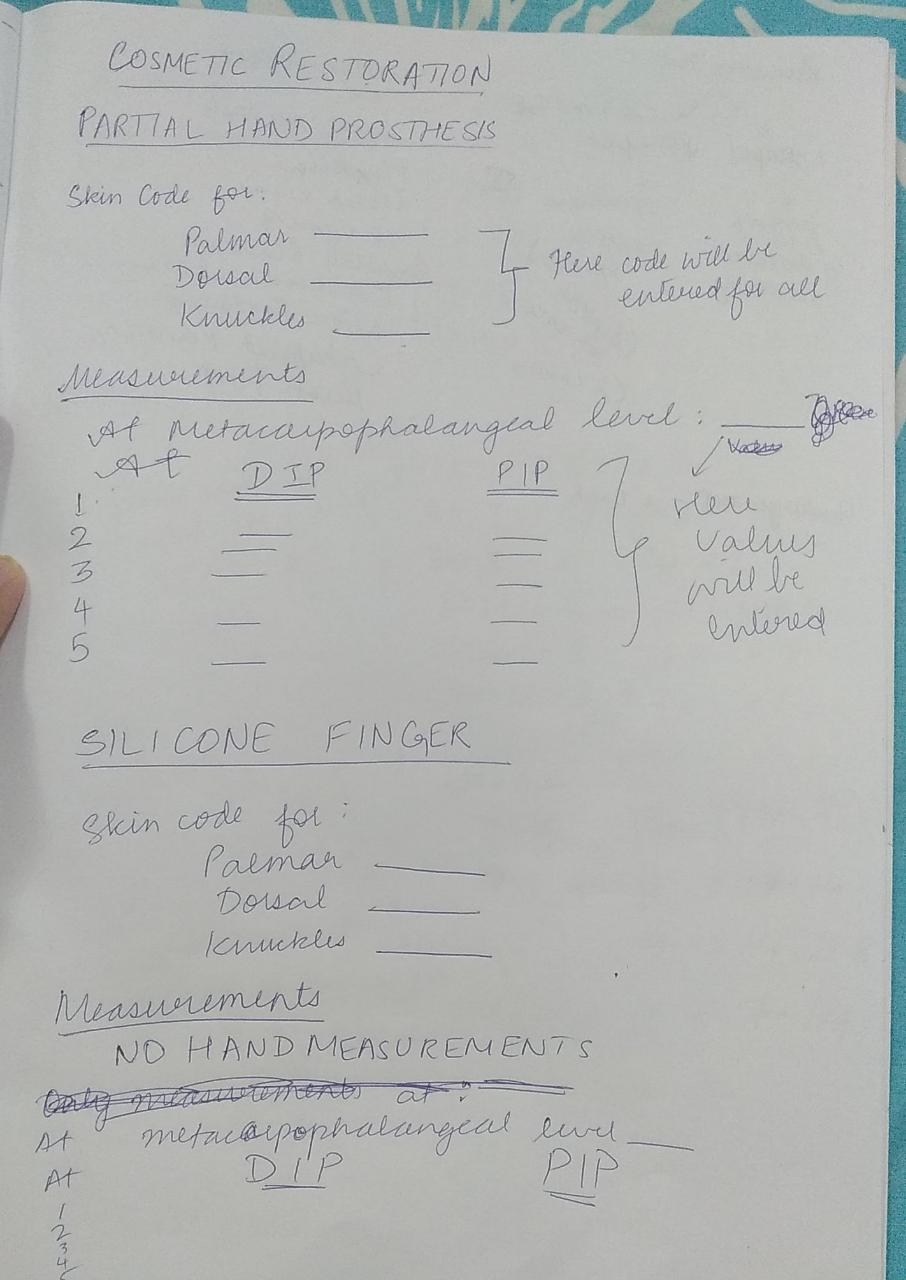 COSMETIC RESTORATION
PARTIAL HAND PROSTHESIS
Skin Code for:
Palmar ____
Dorsal ____
Knuckles ____
Here code will be
entered for all
Measurements
At Metacarpophalangeal level : ____
At DIP PIP
1
2 __ __
3 __ __
4 __ __
5 __ __
Here
Values
will be
entered
SILICONE FINGER
Skin code for :
Palmar ____
Dorsal ____
Knuckles ____
Measurements
NO HAND MEASUREMENTS
Only measurements at :
At metacarpophalangeal level ___
At DIP PIP
1
2
3
4
5